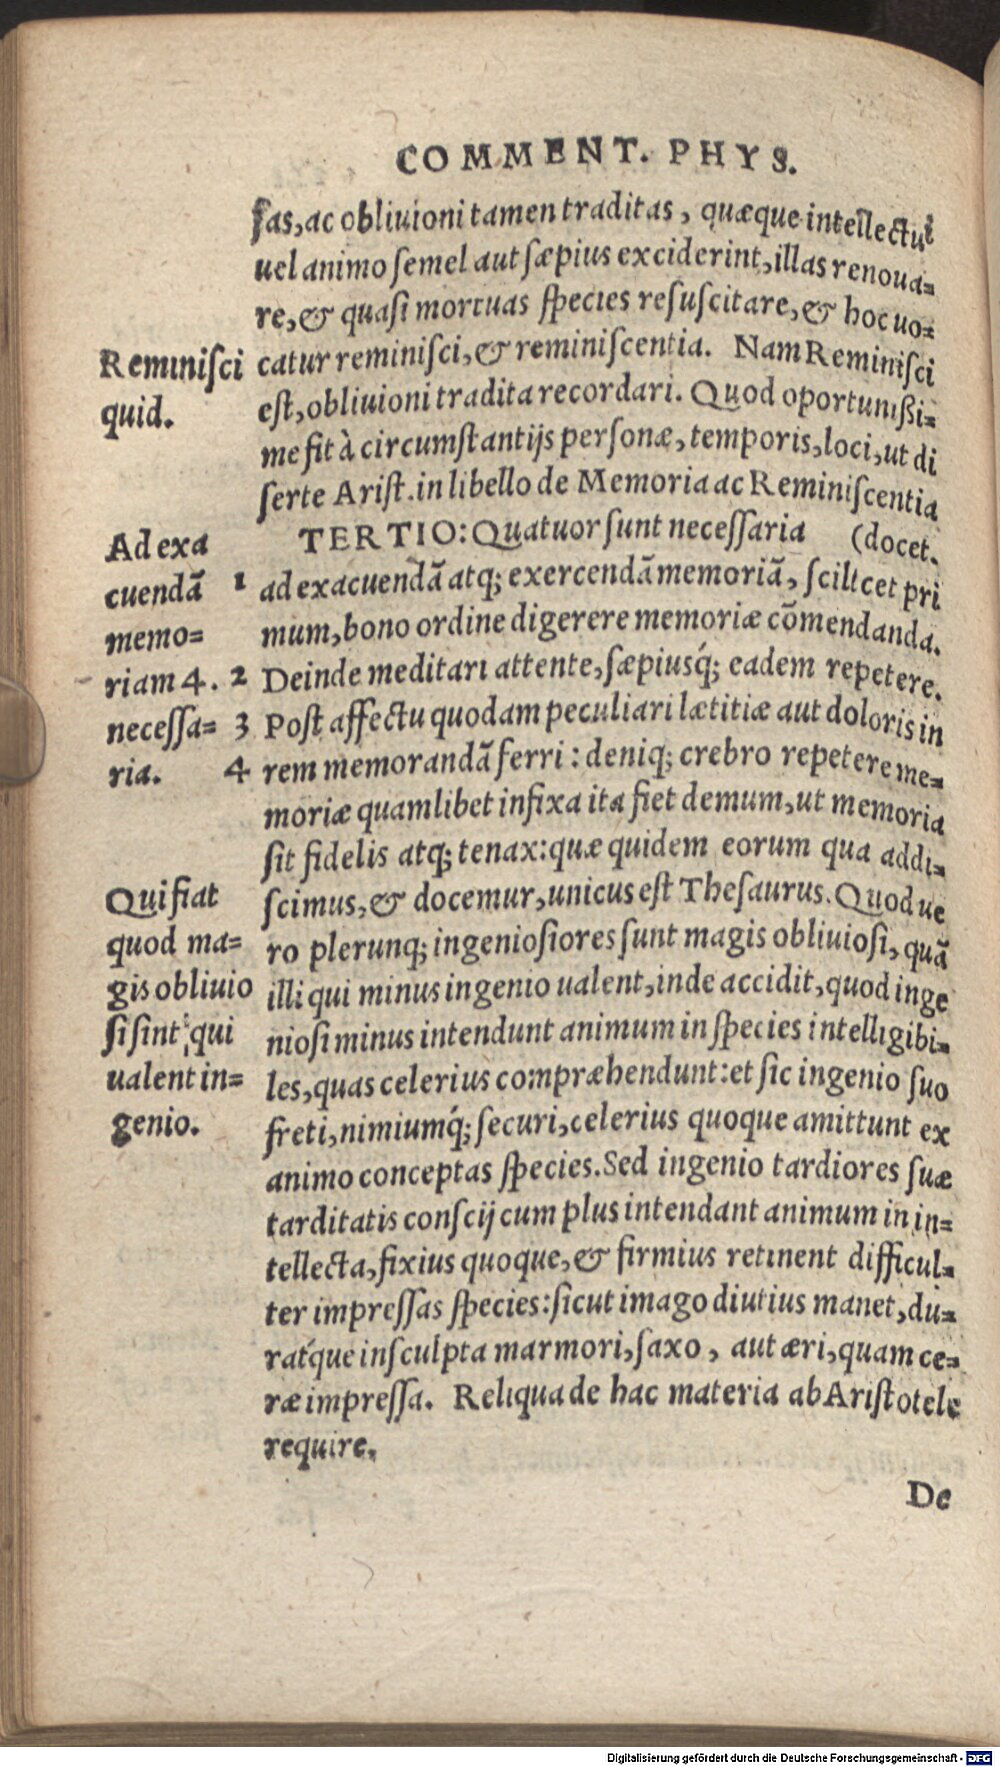 COMMENT. PHYS.
ſas, ac obliuioni tamen traditas, quæque intellectui
uel animo ſemel aut ſæpius exciderint, illas renoua=
re, & quaſi mortuas ſpecies reſuſcitare, & hoc uo=
catur reminiſci, & reminiſcentia. Nam Reminiſci
eſt, obliuioni tradita recordari. Quod oportunißi=
me fit à circumſtantijs perſonæ, temporis, loci, ut di
ſerte Ariſt. in libello de Memoria ac Reminiſcentia
TERTIO: Quatuor ſunt neceſſaria (docet.
ad exacuendā atq; exercendā memoriā, ſcilicet pri
mum, bono ordine digerere memoriæ cōmendanda.
Deinde meditari attente, ſæpiusq́; eadem repetere.
Poſt affectu quodam peculiari lætitiæ aut doloris in
rem memorandā ferri: deniq; crebro repetere me=
moriæ quamlibet infixa ita fiet demum, ut memoria
ſit fidelis atq; tenax: quæ quidem eorum qua addi=
ſcimus, & docemur, unicus eſt Theſaurus. Quod ue
ro plerunq; ingenioſiores ſunt magis obliuioſi, quā
illi qui minus ingenio ualent, inde accidit, quod inge
nioſi minus intendunt animum in ſpecies intelligibi=
les, quas celerius compræhendunt: et ſic ingenio ſuo
freti, nimiumq́; ſecuri, celerius quoque amittunt ex
animo conceptas ſpecies. Sed ingenio tardiores ſuæ
tarditatis conſcij cum plus intendant animum in in=
tellecta, fixius quoque, & firmius retinent difficul=
ter impreſſas ſpecies: ſicut imago diutius manet, du=
ratq́ue inſculpta marmori, ſaxo, aut æri, quam ce=
ræ impreſſa. Reliqua de hac materia ab Ariſtotele
require.
De
Reminiſci
quid.
Ad exa
cuendā 1
memo=
riam 4. 2
neceſſa= 3
ria. 4
Qui fiat
quod ma=
gis obliuio
ſi ſint, qui
ualent in=
genio.
Digitalisierung gefördert durch die Deutsche Forschungsgemeinschaft - DFG